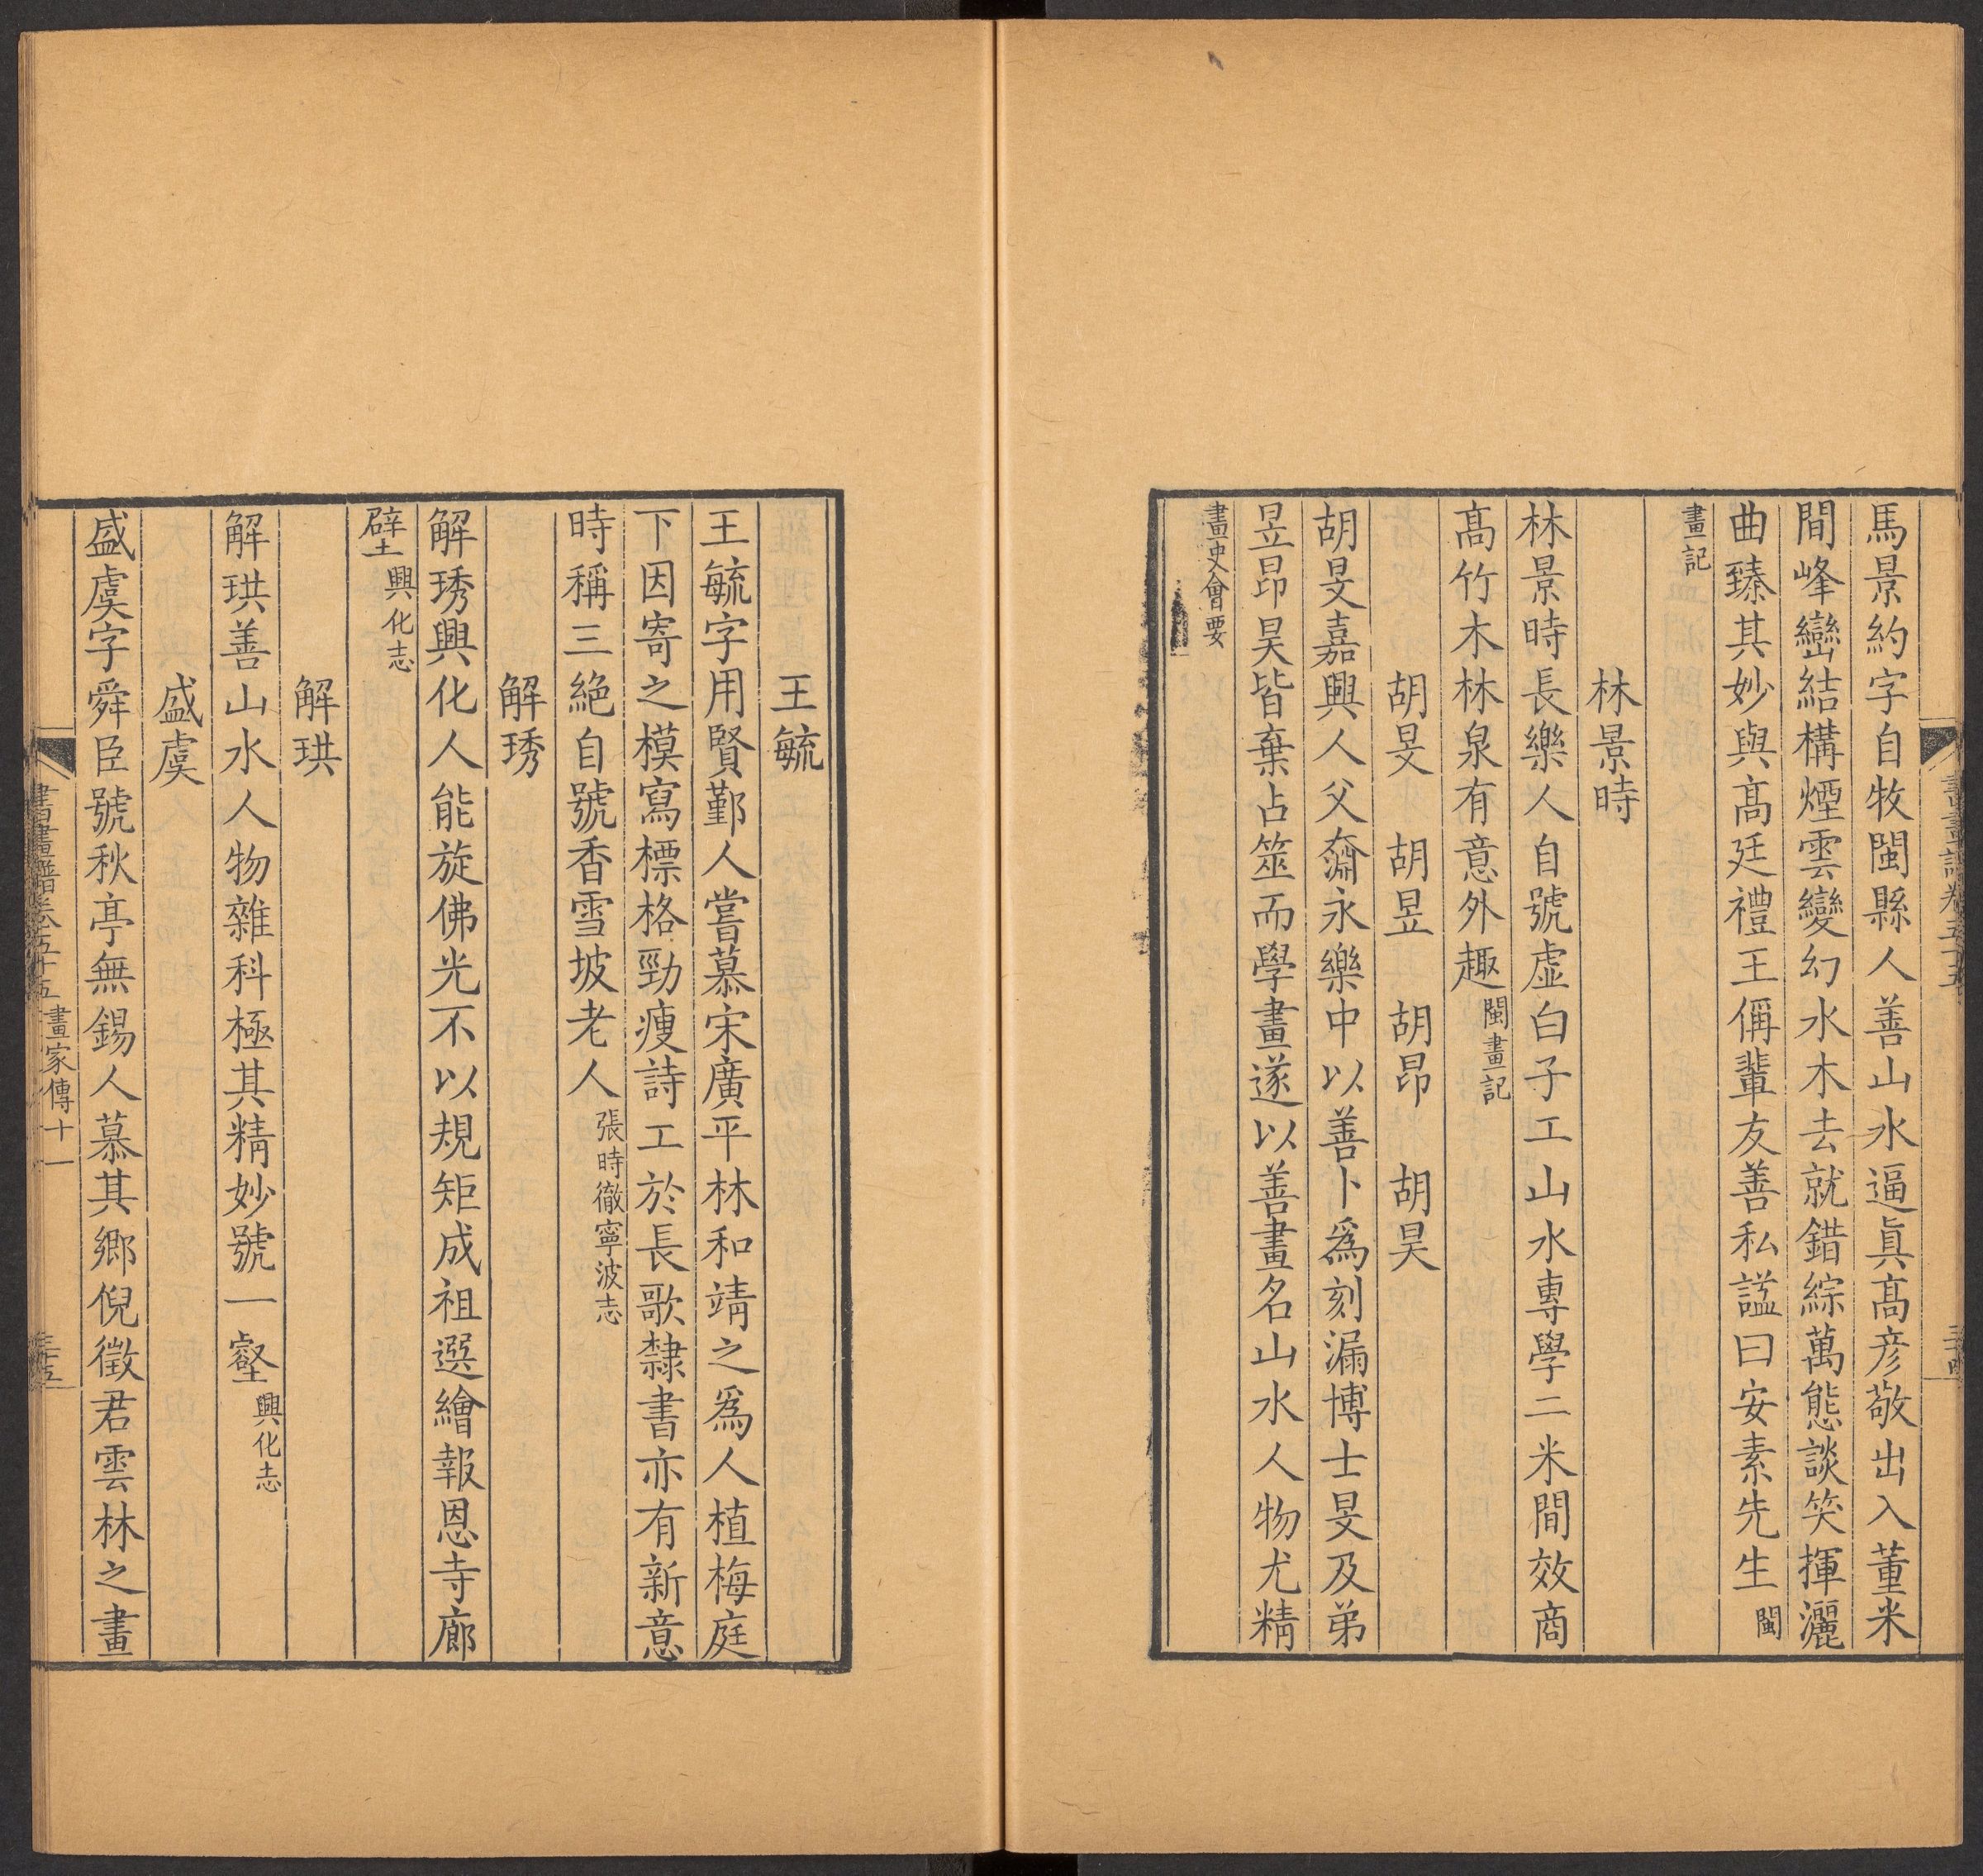 馬景約字自牧閩縣人善山水逼眞髙彦敬出入董米
間峰巒結構煙雲變幻水木去就錯綜萬態談笑揮灑
曲臻其妙與髙廷禮王偁輩友善私謚曰安素先生閩
畫記
林景時
林景時長樂人自號虚白子工山水專學二米間效商
髙竹木林泉有意外趣閩畫記
胡旻　胡昱　胡昂　胡昊
胡旻嘉興人父奫永樂中以善卜爲刻漏博士旻及弟
昱昂昊皆棄占筮而學畫遂以善畫名山水人物尤精
畫史會要
王毓
王毓字用賢鄞人嘗慕宋廣平林和靖之爲人植梅庭
下因寄之模寫標格勁瘦詩工於長歌隸書亦有新意
時稱三絶自號香雪坡老人張時徹寧波志
解琇
解琇興化人能旋佛光不以規矩成祖選繪報恩寺廊
壁興化志
解珙
解珙善山水人物雜科極其精妙號一壑興化志
盛虞
盛虞字舜臣號秋亭無錫人慕其鄉倪徵君雲林之畫
書畫譜卷五十五　畫家傳十一